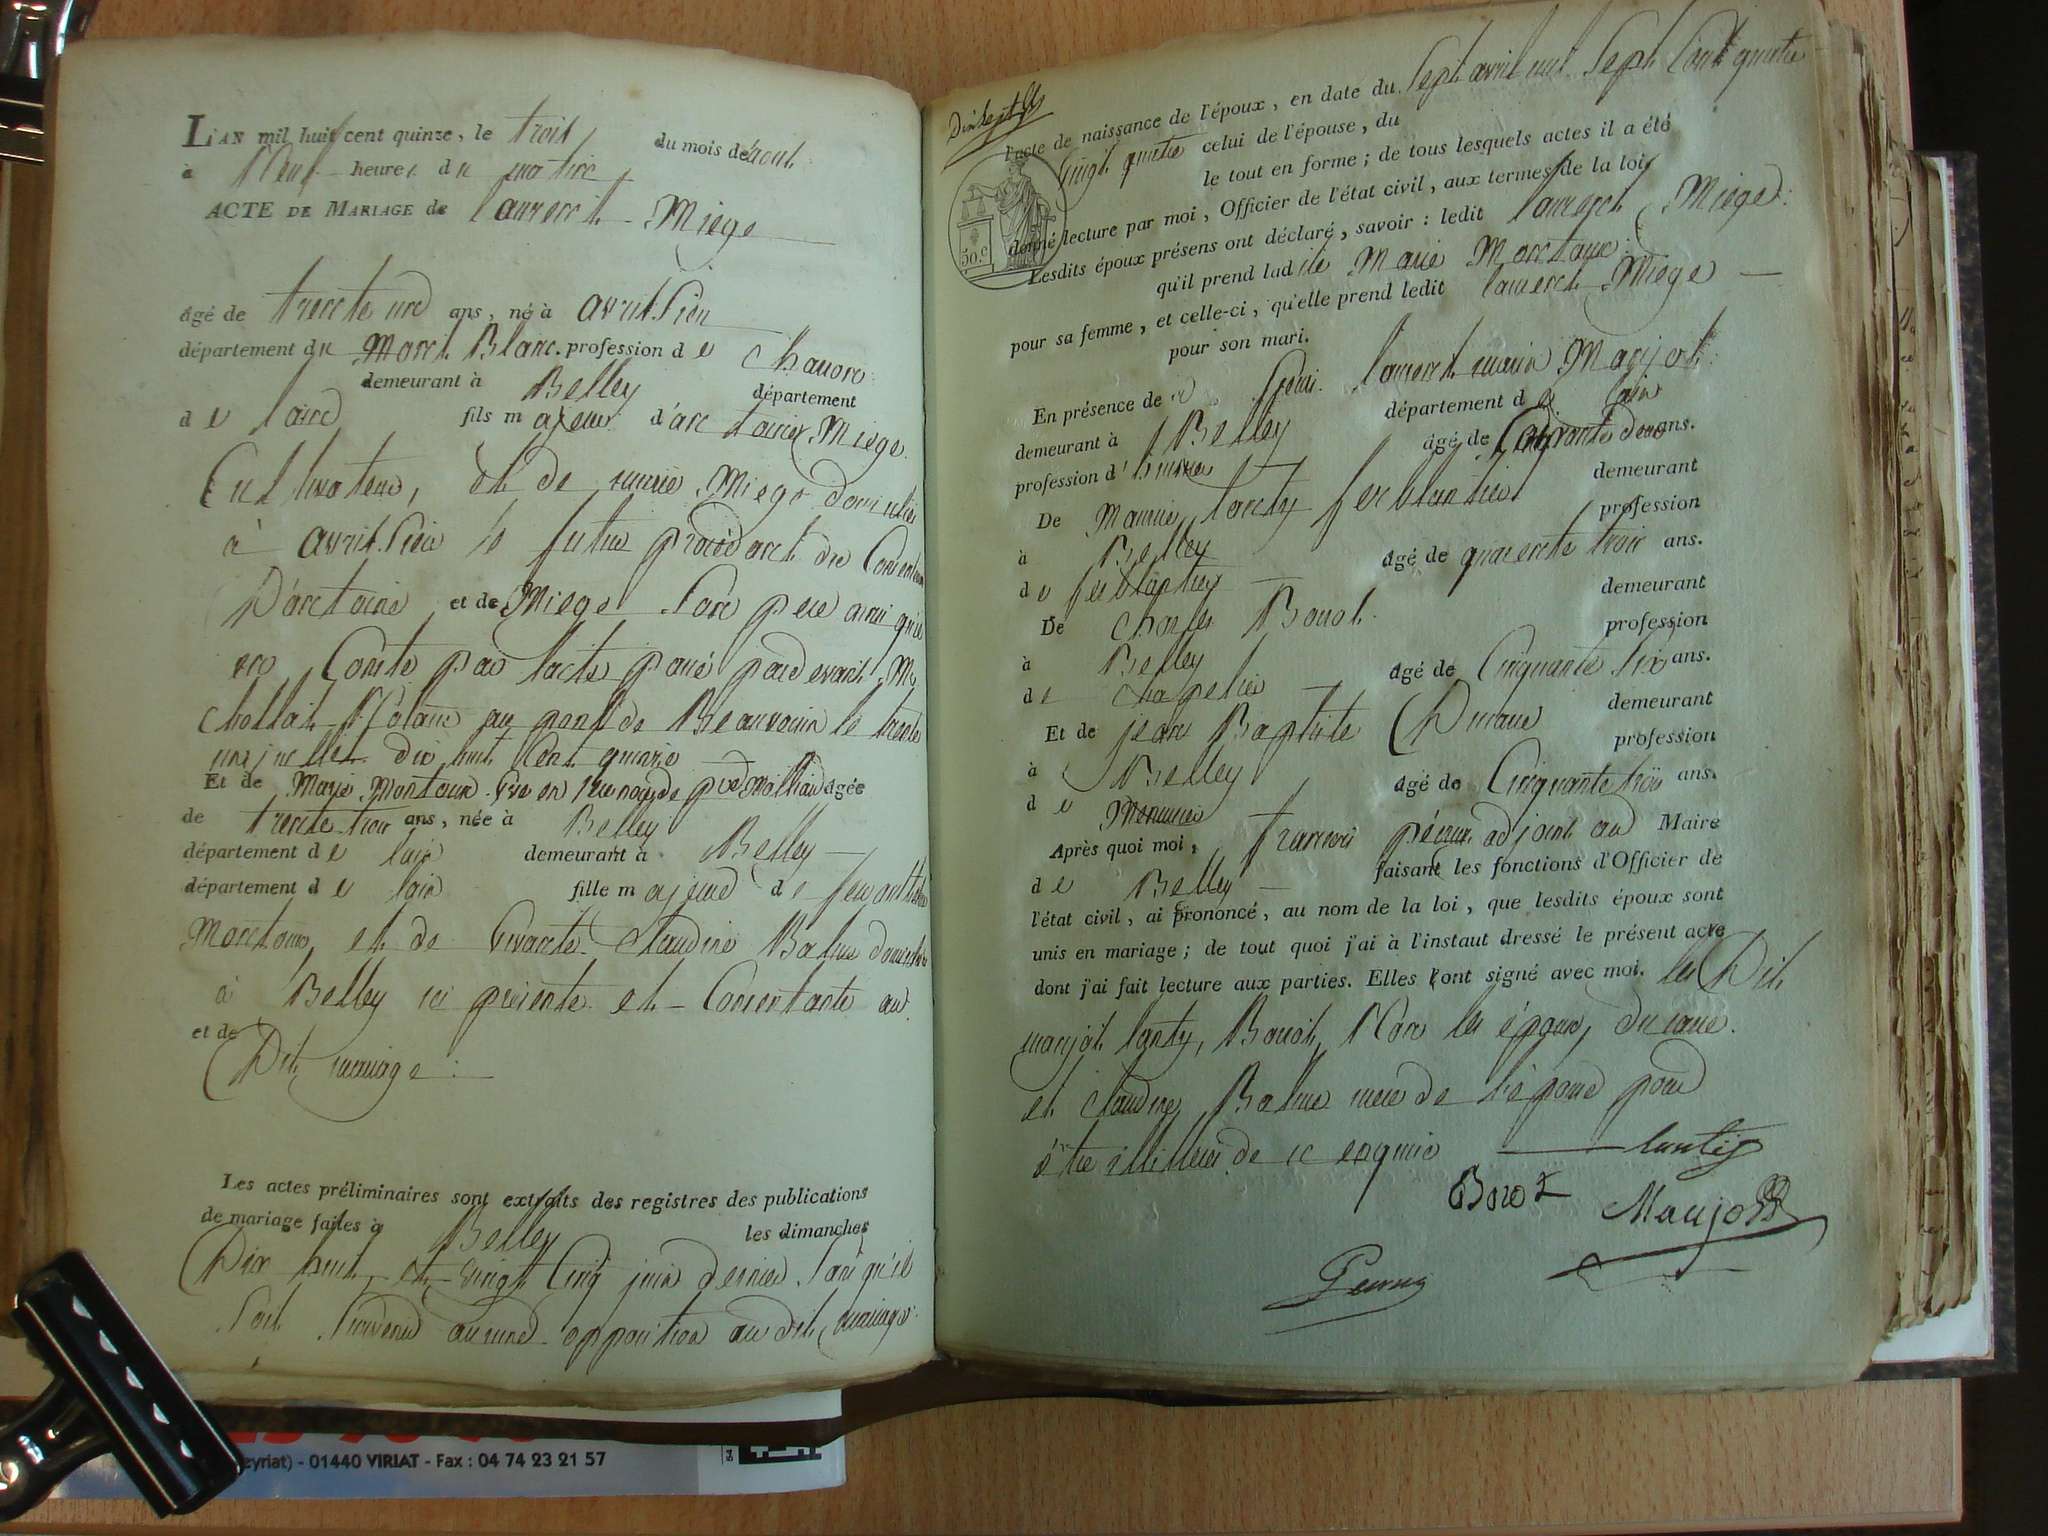 L'AN mil huit cent quinze, le trois du mois de aout
à Neuf heures du matin
ACTE DE MARIAGE de laurent Miege
âgé de trente un ans, né à avrissieu
département du Mont Blanc. profession de
demeurant à Belley département
de lain fils majeur d'antoine Miege
Cultivateur, et de marie Miege domicilies
à avrissieu le futur procedant du Consentement
D'antoine et de Miege son pere ainsi qu'il
en Conste par lacte passé pardevant Me
Notaire au pont de Beauvoisin le trente
un juillet dix huit Cent quinze
Et de Marie Montoux âgée
de trente trois ans, née à Belley
département de lain demeurant à Belley
département de lain fille majeure de
Montoux, et de vivante Claudine Balme domiciliée
à Belley ici présente et Consentante au
et de
Dit mariage
Les actes préliminaires sont extraits des registres des publications
de mariage faites à Belley les dimanches
Dix huit et vingt Cinq juin dernier sans qu'il
soit survenu aucune opposition au dit mariage
Dix sept
l'acte de naissance de l'époux, en date du Sept avril mil Sept Cent quatre
vingt quatre celui de l'épouse, du
le tout en forme; de tous lesquels actes il a été
donné lecture par moi, Officier de l'état civil, aux termes de la loi,
50.c
Lesdits époux présens ont déclaré, savoir: ledit laurent Miege
qu'il prend ladite Marie Montoux
pour sa femme, et celle-ci, qu'elle prend ledit laurent Miege
pour son mari.
En présence de laurent marin Maujot
demeurant à Belley département de lain
profession d'huissier âgé de Cinquante deux ans.
De Maurice lanty ferblantier demeurant
à Belley profession
de ferblantier âgé de quarente trois ans.
De Charles Borot demeurant
à Belley profession
de Chapelier âgé de Cinquante six ans.
Et de jean Baptiste demeurant
à Belley profession
de Menuisier âgé de Cinquante trois ans.
Après quoi moi, adjoint au Maire
de Belley faisant les fonctions d'Officier de
l'état civil, ai prononcé, au nom de la loi, que lesdits époux sont
unis en mariage; de tout quoi j'ai à l'instant dressé le présent acte
dont j'ai fait lecture aux parties. Elles ont signé avec moi. les Dits
maujot lanty, Borot, Non les époux,
et Claudine Balme mere de l'épouse pour
être illitérés de ce enquis lanty
Borot Maujot
eyriat) - 01440 VIRIAT - Fax : 04 74 23 21 57